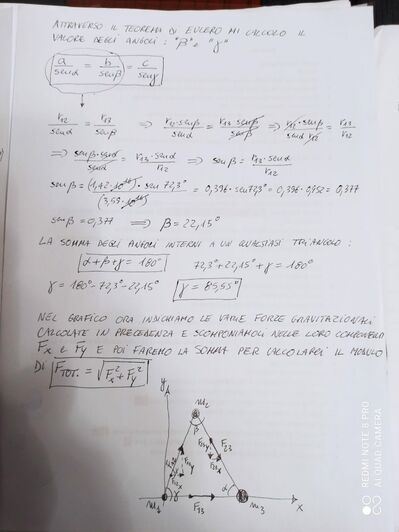 ATTRAVERSO IL TEOREMA DI EULERO MI CALCOLO IL
VALORE DEGLI ANGOLI : "β" e "γ"
a/senα = b/senβ = c/senγ
r12/senα = r13/senβ ⇒ r12·senβ/senα = r13·senβ/senβ ⇒ r12·senβ/senα r12 = r13/r12
⇒ senβ·senα/senα = r13·senα/r12 ⇒ senβ = r13·senα/r12
senβ = (1,42·10)·sen 72,3°/(3,59·10) = 0,396·sen72,3° = 0,396·0,952 = 0,377
senβ = 0,377 ⇒ β = 22,15°
LA SOMMA DEGLI ANGOLI INTERNI A UN QUALSIASI TRIANGOLO :
α+β+γ = 180° 72,3°+22,15°+γ = 180°
γ = 180°-72,3°-22,15° γ = 85,55°
NEL GRAFICO ORA INDICHIAMO LE VARIE FORZE GRAVITAZIONALI
CALCOLATE IN PRECEDENZA E SCOMPONIAMOLE NELLE LORO COMPONENTI
Fx E Fy E POI FAREMO LA SOMMA PER CALCOLARCI IL MODULO
DI FTOT. = √Fx²+Fy²
y
m2
β
F23y F23
F23x
F12x
γ α
m1 F13 m3 x
REDMI NOTE 8 PRO
AI QUAD CAMERA